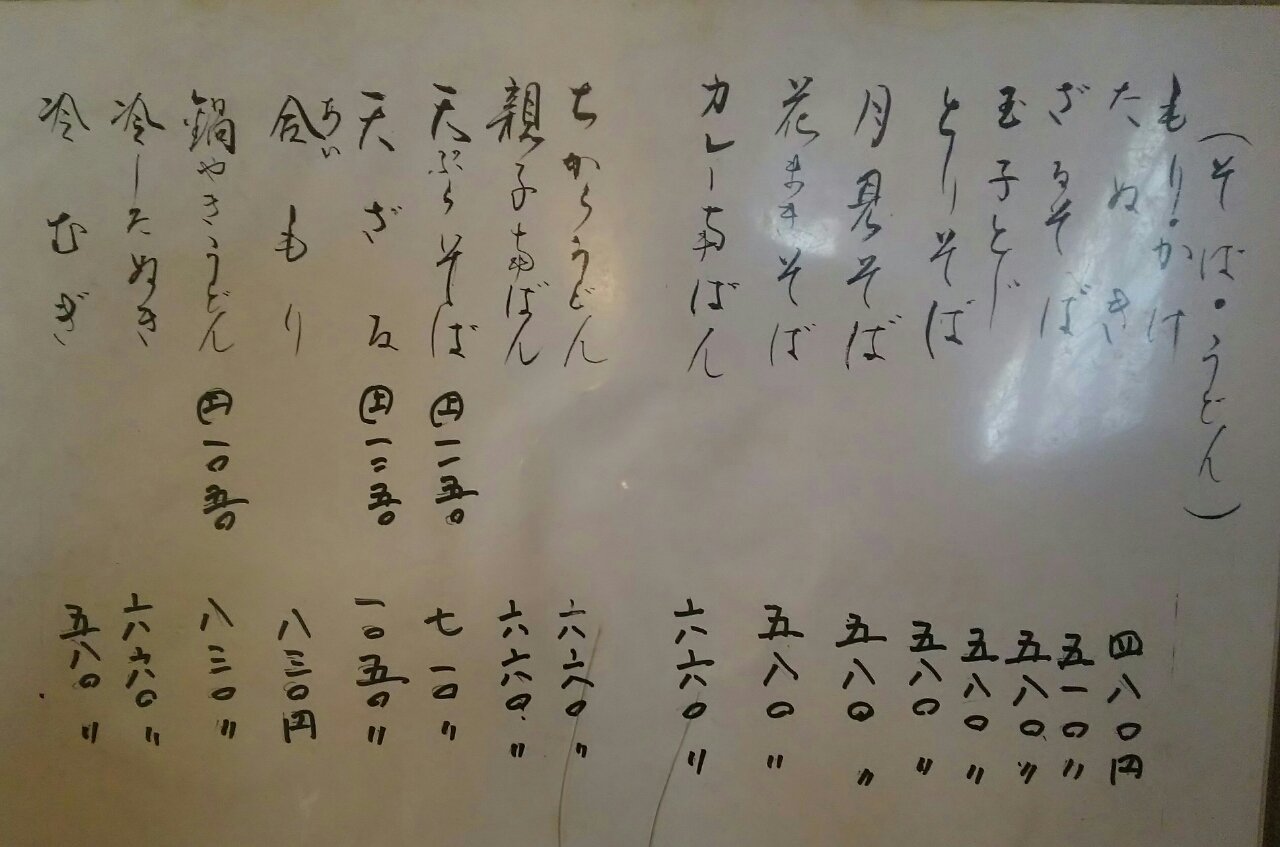 (そば・うどん)
もり・かけ 四八〇円
たぬき 五一〇〃
ざるそば 五八〇〃
玉子とじ 五八〇〃
とりそば 五八〇〃
月見そば 五八〇〃
花まきそば 五八〇〃
カレー南ばん 六六〇〃
ちからうどん 六六〇〃
親子南ばん 六六〇〃
天ぷらそば ㊤一一五〇 七一〇〃
天ざる ㊤一二五〇 一〇五〇〃
合もり 八三〇円
あい
鍋やきうどん ㊤一〇五〇 八三〇〃
冷したぬき 六六〇〃
冷むぎ 五八〇〃